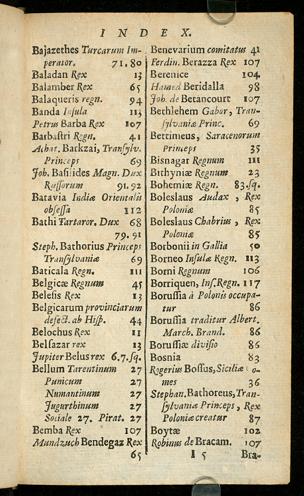 INDEX.
Bajazethes Turcarum Im-
perator. 71.80
Baladan Rex 13
Balamber Rex 65
Balaqueris regn. 94
Banda Insula 113
Petrus Barba Rex 107
Barbastri Regn. 41
Achat. Backzai, Transylv.
Princeps 69
Joh. Basilides Magn. Dux
Russorum 91.92
Batavia Indiæ Orientalis
obsessa 112
Bathi Tartaror. Dux 68
79.91
Steph. Bathorius Princeps
Transylvaniæ 69
Baticala Regn. 111
Belgicæ Regnum 45
Belesis Rex 13
Belgicarum provinciarum
defect. ab Hisp. 44
Belochus Rex 11
Belsazar rex 13
Jupiter Belus rex 6.7.sq.
Bellum Tarentinum 27
Punicum 27
Numantinum 27
Jugurthinum 27
Sociale 27. Pirat. 27
Bemba Rex 107
Mundzuch Bendegaz Rex
65
Benevarium comitatus 41
Ferdin. Berazza Rex 107
Berenice 104.
Hamed Beridalla 98
Joh. de Betancourt 107
Bethlehem Gabor, Tran-
sylvaniæ Princ. 69
Bettimeus, Saracenorum
Princeps 35
Bisnagar Regnum 111
Bithyniæ Regnum 23
Bohemiæ Regn. 83.sq.
Boleslaus Audax, Rex
Poloniæ 85
Boleslaus Chabrius, Rex
Poloniæ 85
Borbonii in Gallia 50
Borneo Insulæ Regn. 113
Borni Regnum 106
Borriquen, Ins. Regn. 117
Borussia à Polonis occupa-
tur 86
Borussia traditur Albert.
March. Brand. 86
Borussiæ divisio 86
Bosnia 83
Rogerius Bossus, Siciliæ co-
mes 36
Stephan. Bathoreus, Tran-
sylvaniæ Princeps, Rex
Poloniæ creatur 87
Boytæ 102
Robinus de Bracam. 107
I 5 Bra-